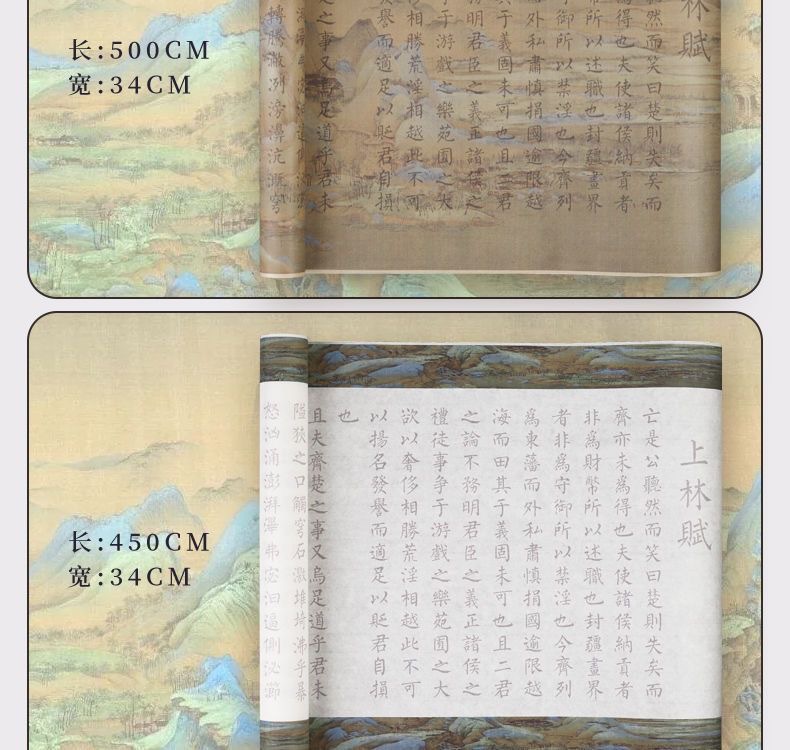 长:500CM
宽:34CM
林賦
然而笑曰楚則失矣而
得也夫使諸侯納貢者
所以述職也封疆畫界
御所以禁淫也今齊列
外私肅慎捐國逾限越
于義固未可也且二君
明君臣之義正諸侯之
于游戲之樂苑囿之大
相勝荒淫相越此不可
發譽而適足以貶君自損
之事又烏足道乎君未
轉騰潎洌滂濞沆溉穹
长:450CM
宽:34CM
上林賦
亡是公聽然而笑曰楚則失矣而
齊亦未爲得也夫使諸侯納貢者
非爲財幣所以述職也封疆畫界
者非爲守御所以禁淫也今齊列
爲東藩而外私肅慎捐國逾限越
海而田其于義固未可也且二君
之論不務明君臣之義正諸侯之
禮徒事爭于游戲之樂苑囿之大
欲以奢侈相勝荒淫相越此不可
以揚名發譽而適足以貶君自損
也
且夫齊楚之事又烏足道乎君未
隘狹之口觸穹石激堆埼沸乎暴
怒洶涌澎湃滭弗宓汩逼側泌瀄